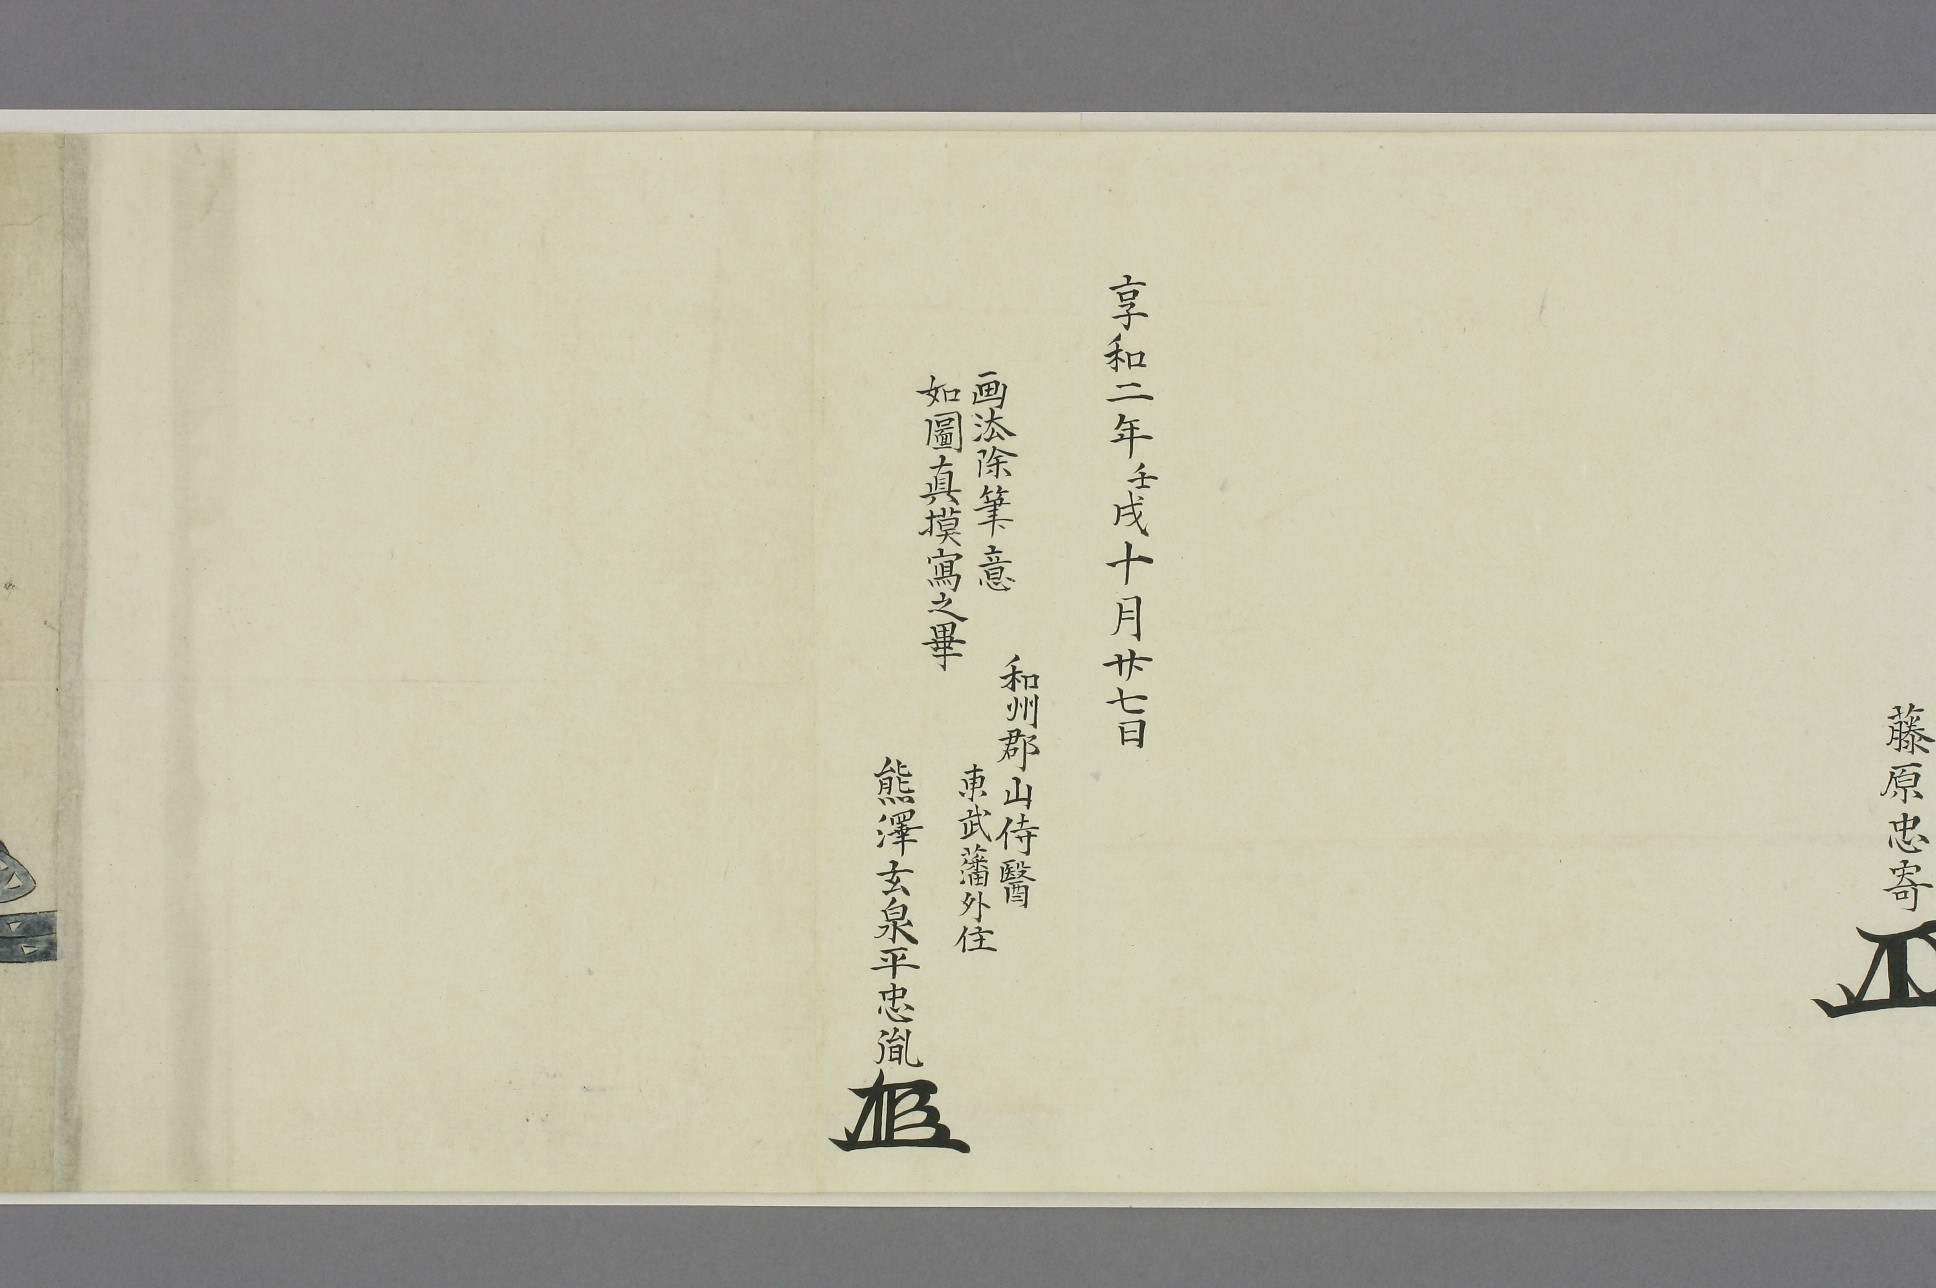 藤原忠寄
享和二年壬戌十月廿七日
画法除筆意
如圖真摸寫之畢
和州郡山侍醫
東武藩外住
熊澤玄泉平忠胤